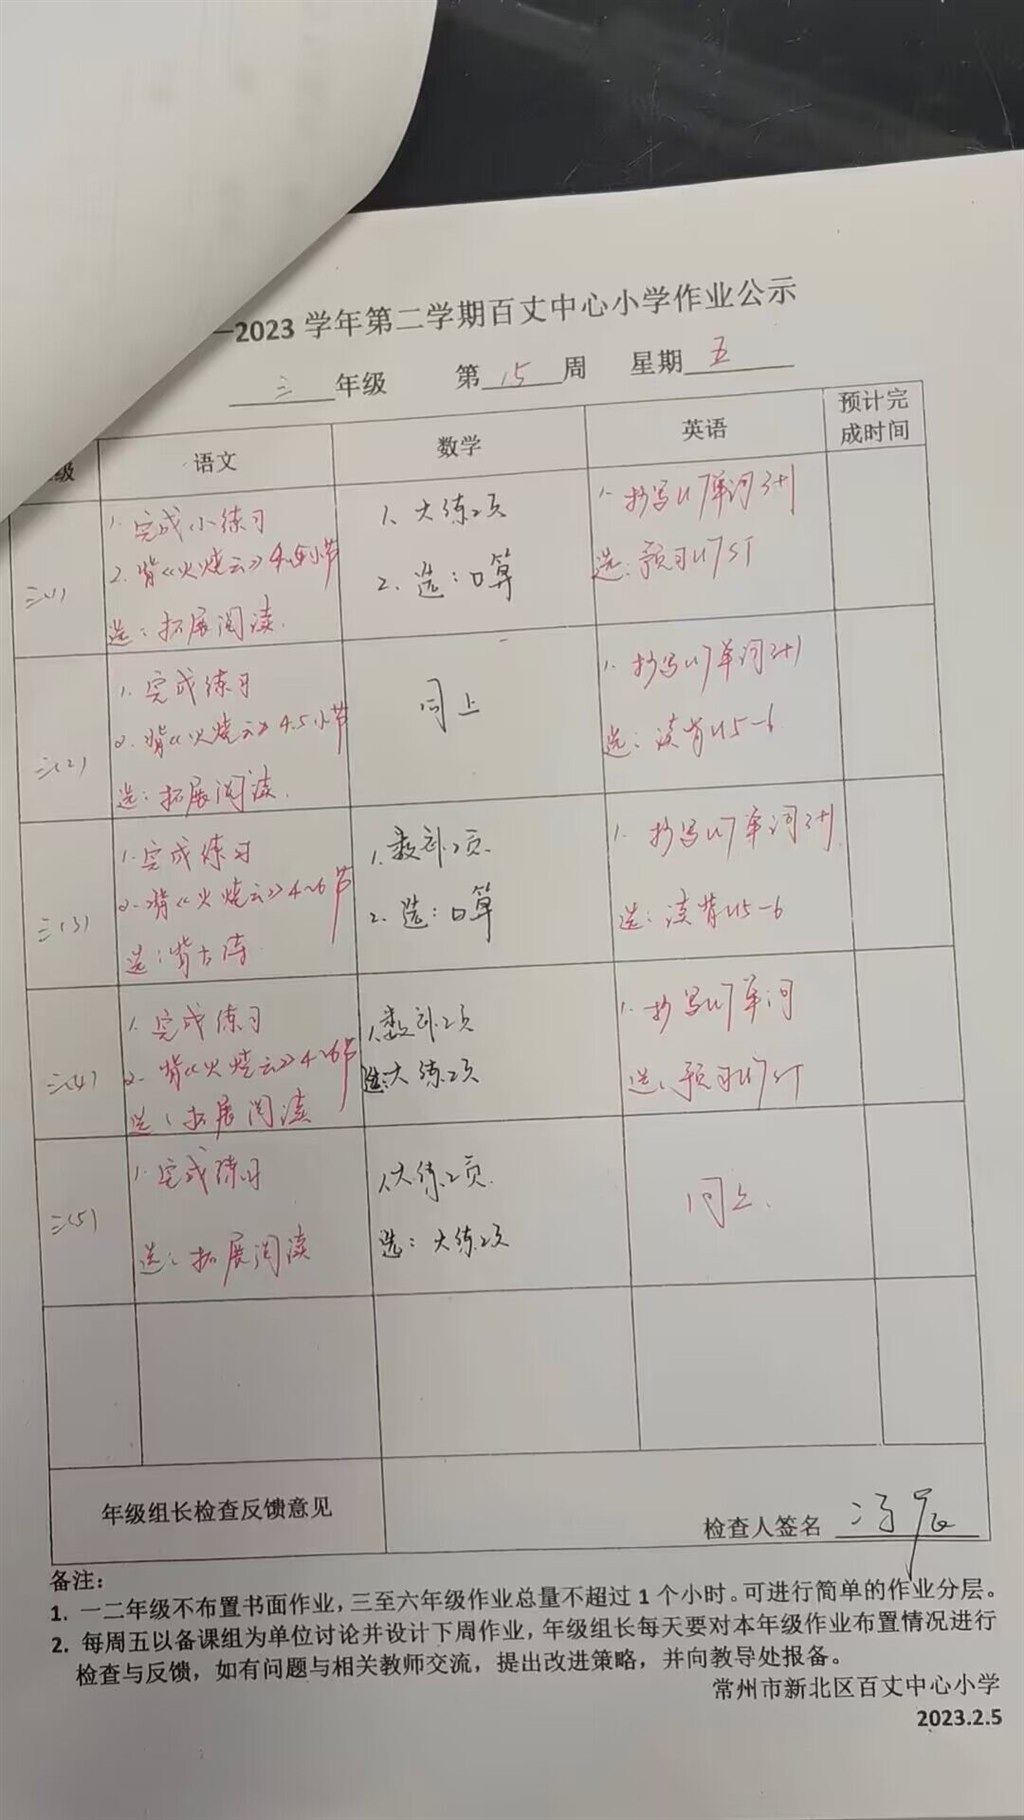 —2023 学年第二学期百丈中心小学作业公示
三 年级 第 15 周 星期 五
级 语文 数学 英语 预计完成时间
三(1)
1. 完成小练习
2. 背《火烧云》4.5小节
选：拓展阅读.
1. 大练2页
2. 选：口算
1. 抄写U7单词3+1
选：预习U7ST
三(2)
1. 完成练习
2. 背《火烧云》4.5小节
选：拓展阅读.
同上
1. 抄写U7单词3+1
选：读背U5-6
三(3)
1. 完成练习
2. 背《火烧云》4~6节
选：背古诗
1. 数补2页.
2. 选：口算
1. 抄写U7单词3+1
选：读背U5-6
三(4)
1. 完成练习
2. 背《火烧云》4~6节
选：拓展阅读
1.数补2页
选：大练2页
1. 抄写U7单词
选：预习U7ST
三(5)
1. 完成练习
选：拓展阅读
1.大练2页.
选：大练2页
同上.
年级组长检查反馈意见
检查人签名 冯
备注：
1. 一二年级不布置书面作业，三至六年级作业总量不超过 1 个小时。可进行简单的作业分层。
2. 每周五以备课组为单位讨论并设计下周作业，年级组长每天要对本年级作业布置情况进行
检查与反馈，如有问题与相关教师交流，提出改进策略，并向教导处报备。
常州市新北区百丈中心小学
2023.2.5